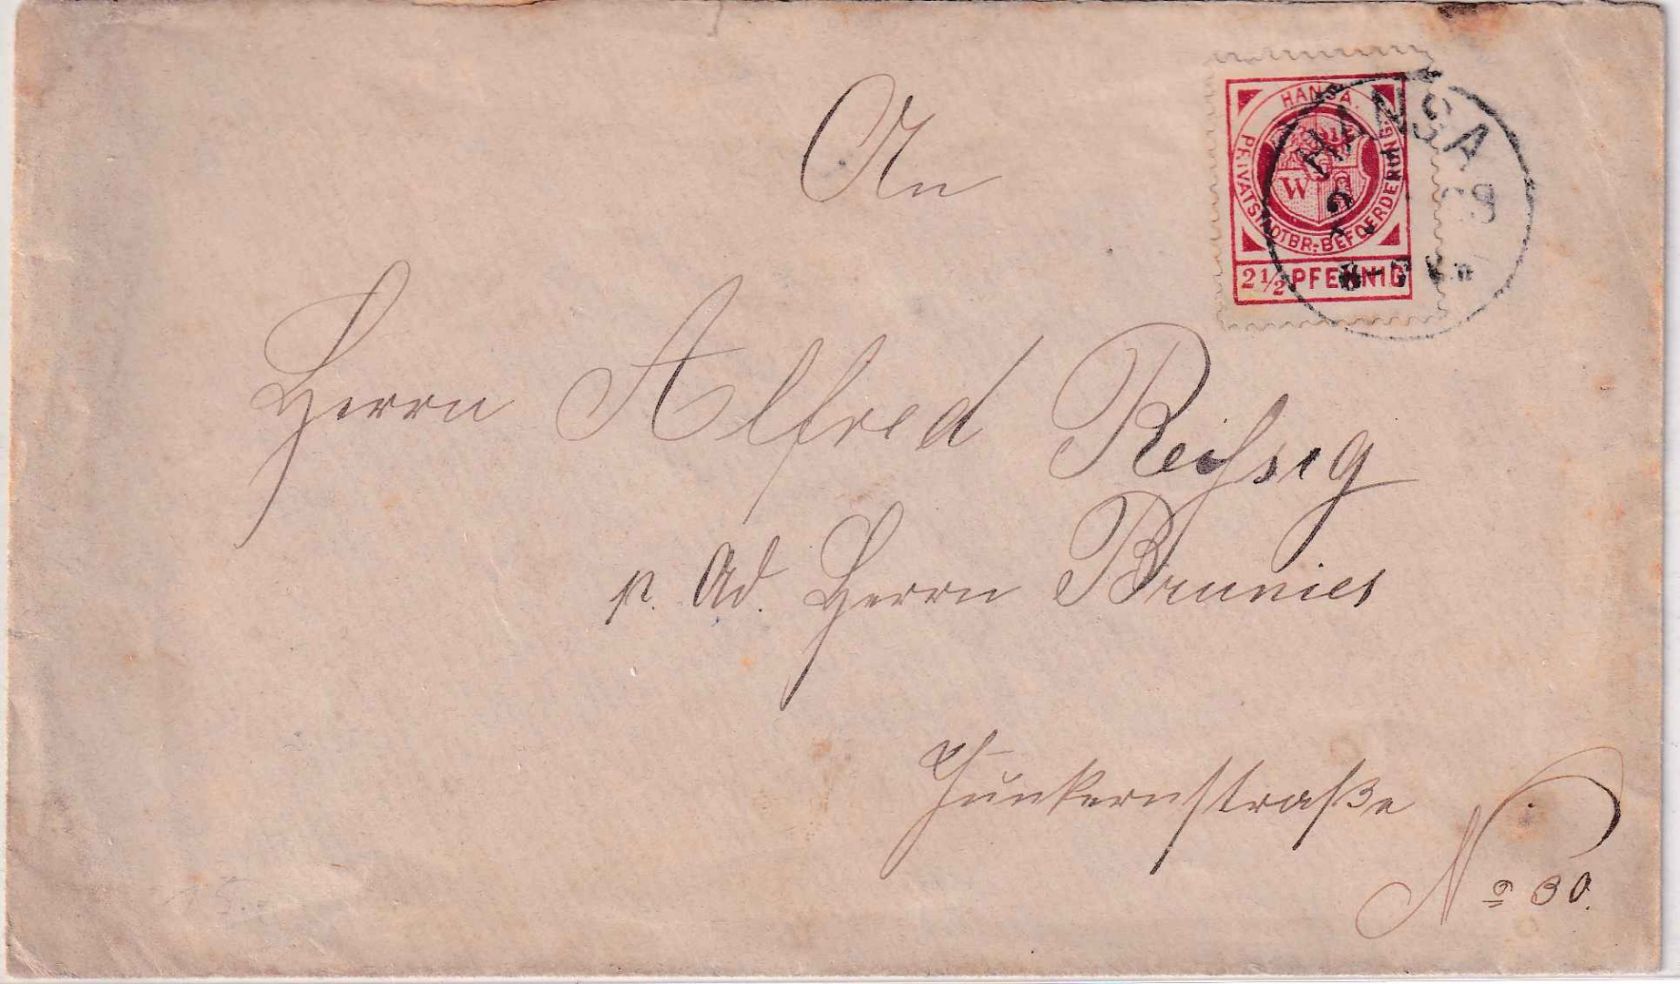 An
HANSA.
PRIVATSTADTBR.-BEFOERDERUNG
W
2½ PFENNIG
HANSA
Herrn Alfred Reihsig
p. Ad. Herrn Brunies
Junkernstraße
No 30.